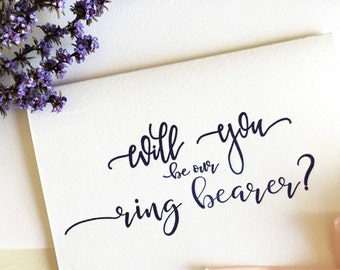 will you
be our
ring bearer?